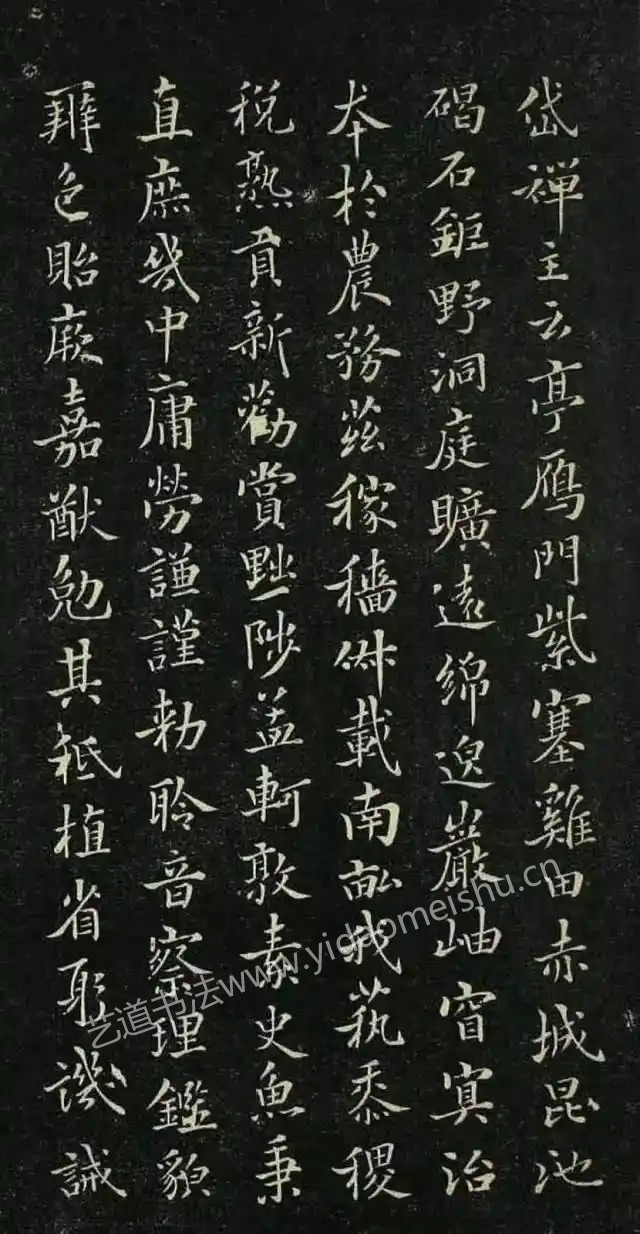 岱禪主云亭鴈門紫塞雞田赤城昆池
碣石鉅野洞庭曠遠綿邈巖岫窅冥治
本於農務茲稼穡俶載南畝我蓺黍稷
稅熟貢新勸賞黜陟孟軻敦素史魚秉
直庶幾中庸勞謙謹勑聆音察理鑑貌
辨色貽厥嘉猷勉其祗植省躬譏誡
艺道书法www.yidaomeishu.cn